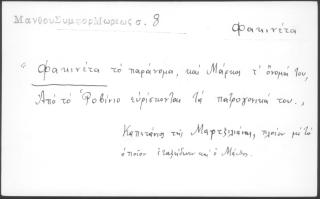 ΜανθουΣυμφορΜωρεως σ. 8
φακινέτα
"φακινέτα τὸ παράνομα, καὶ Μάρκος τ' ὄνομά του,
Ἀπὸ τὸ Ῥοβίνιο εὑρίσκονται τὰ πατρογονικά του.,
Καπετάνιος τῆς Μαρτζιλιάνας, πλοίου μὲ τὸ
ὁποῖον ἐταξίδευε καὶ ὁ Μάνθος.